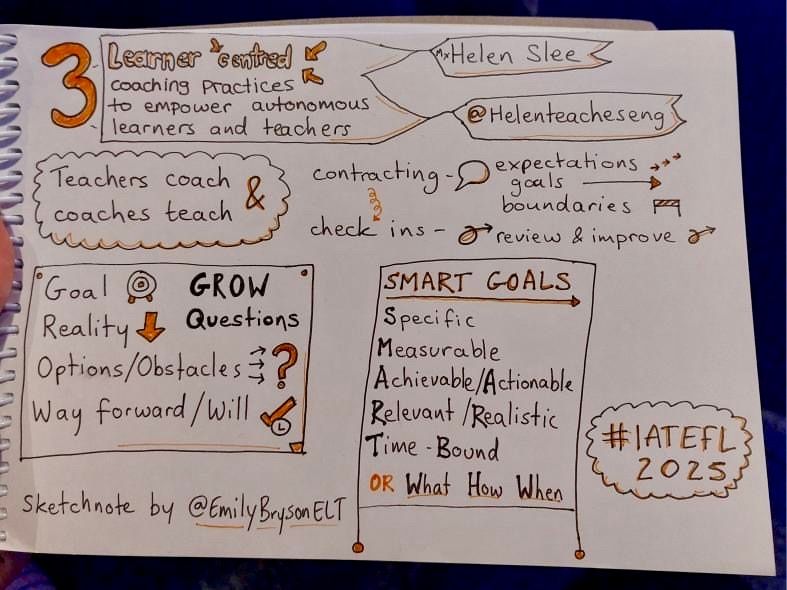 3 Learner centred
coaching practices
to empower autonomous
learners and teachers
Mx Helen Slee
@Helenteacheseng
Teachers coach &
coaches teach
contracting - expectations
goals
boundaries
check ins - review & improve
Goal GROW
Reality Questions
Options/Obstacles ?
Way forward/Will
SMART GOALS
Specific
Measurable
Achievable/Actionable
Relevant/Realistic
Time-Bound
OR What How When
#IATEFL
2025
Sketchnote by @EmilyBrysonELT